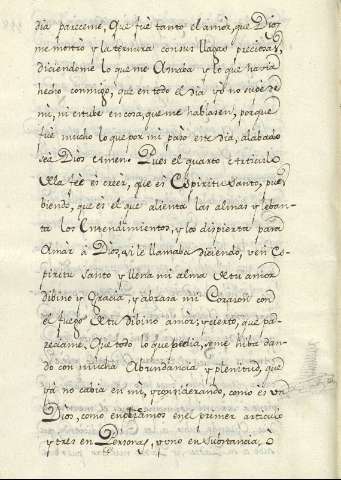 dia pareceme, Que fue tanto el amor, que Dios
me mostró y la ternura con sus llagas preciosas,
diciendome lo que me Amaba y lo que havia
hecho conmigo, que en todo el dia yo no supe de
mi, ni entube en cosa, que me hablasen, porque
fue mucho lo que por mi paso este dia, alabado
sea Dios Amen. Pues el quarto Articulo
de la fee es creer, que es Espiritu Santo, pues
biendo, que es el que alienta las almas y leban-
ta los Entendimientos, y los dispierta para
Amar à Dios, y le llamaba diciendo, ven Es-
piritu Santo y llena mi alma de tu amor
dibino y Gracia, y abrasa mi Corazon con
el fuego de tu dibino amor, y cierto, que pa-
reciame, Que todo lo que pedia, se me hiba dan-
do con mucha Abundancia y plenitud, que
yá no cabia en mi, y considerando, como es un
Dios, como entendimos en el primer articulo
y tres en Personas, y uno en substancia, ò